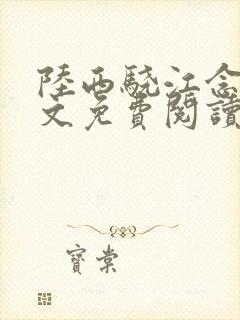 陸西驍江念
文免費閱讀
寶棠